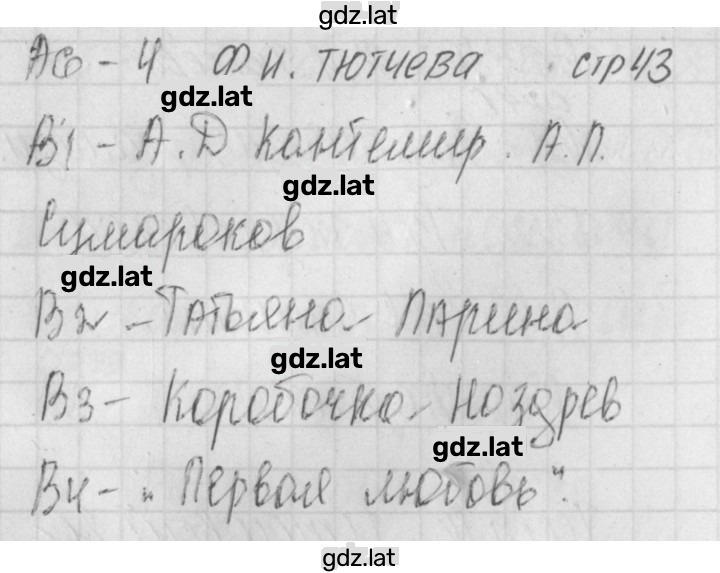 gdz.lat
А6 - 4 Ф И. Тютчева стр 43
gdz.lat
В1 - А.Д Кантемир. А.П.
gdz.lat
Сумароков
gdz.lat
В2 - Татьяна Ларина
gdz.lat
В3 - Коробочка Ноздрев
gdz.lat
В4 - „Первая любовь".
gdz.lat